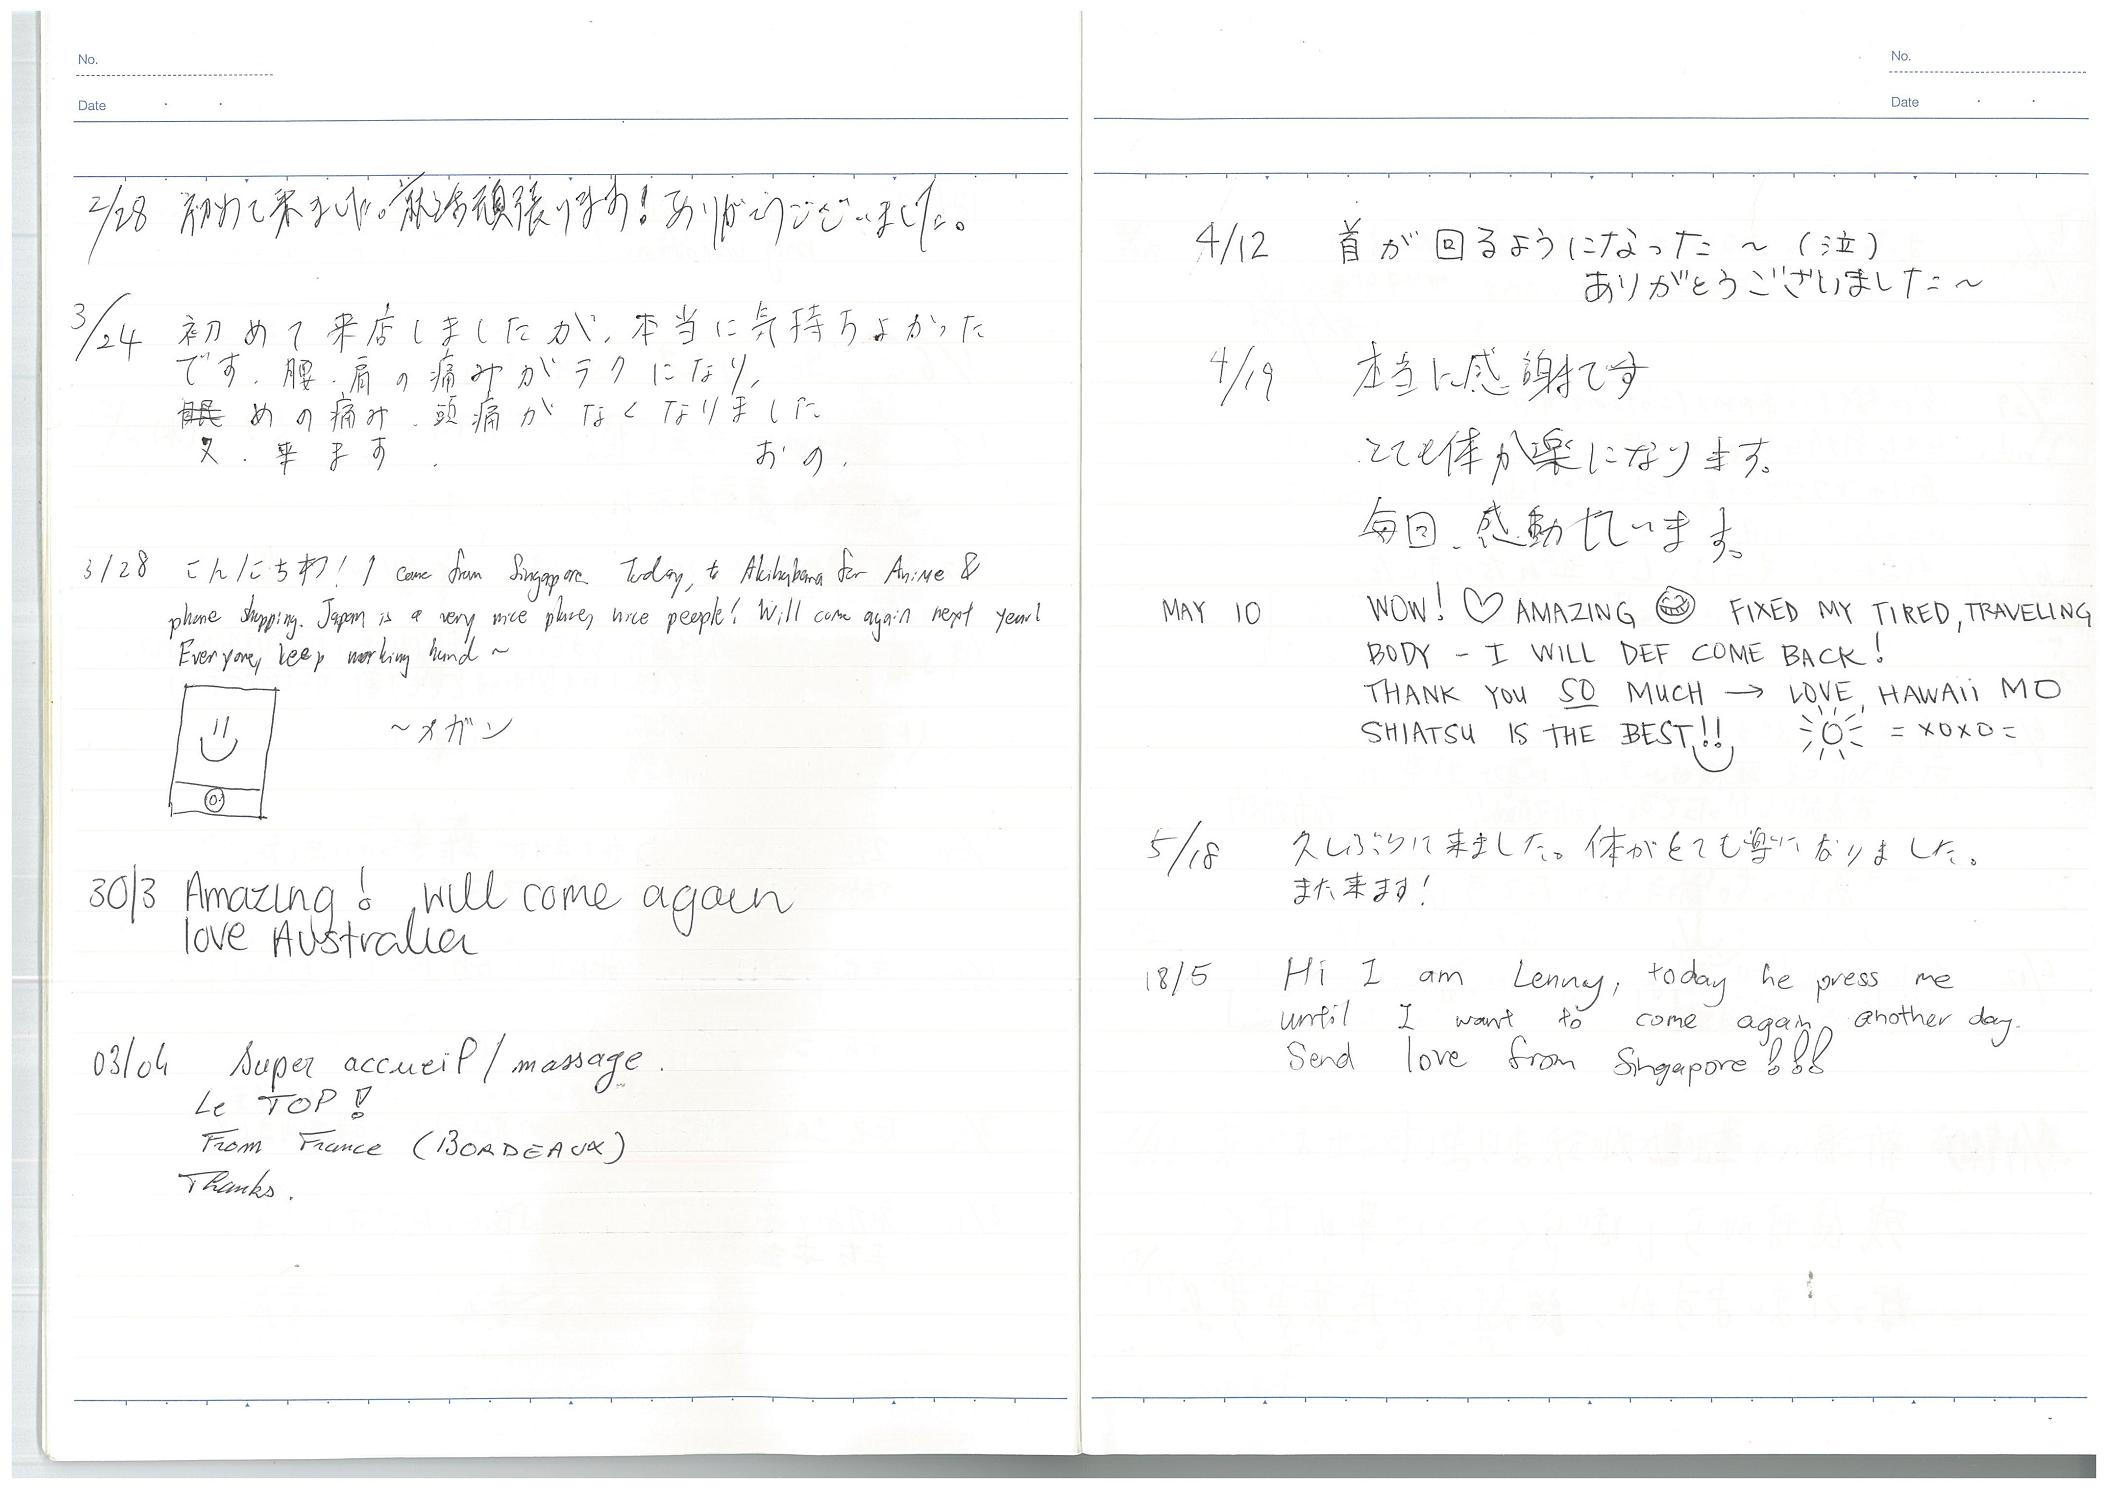 No.
Date
2/28 初めて来ました。頑張ります!ありがとうございました。
3/24 初めて来店しましたが、本当に気持ちよかった
です.腰.肩の痛みがラクになり、
めの痛み.頭痛がなくなりました
又.来ます.
おの.
3/28 こんにちわ! I come from Singapore. Today, to Akihabara for Anime &
phone shopping. Japan is a very nice place, nice people! Will come again next year!
Everyone, keep working hard ~
~メガン
30/3 Amazing! will come again
love Australia
03/04 Super accueil / massage.
Le TOP!
From France (BORDEAUX)
Thanks.
No.
Date
4/12 首が回るようになった~(泣)
ありがとうございました~
4/19 本当に感謝です
とても体が楽になります。
毎回、感動しています。
MAY 10 WOW! ♡ AMAZING FIXED MY TIRED, TRAVELING
BODY - I WILL DEF COME BACK!
THANK YOU SO MUCH → LOVE, HAWAII MO
SHIATSU IS THE BEST!! = XOXO =
5/18 久しぶりに来ました。体がとても楽になりました。
また来ます!
18/5 Hi I am Lenny, today he press me
until I want to come again another day.
Send love from Singapore!!!